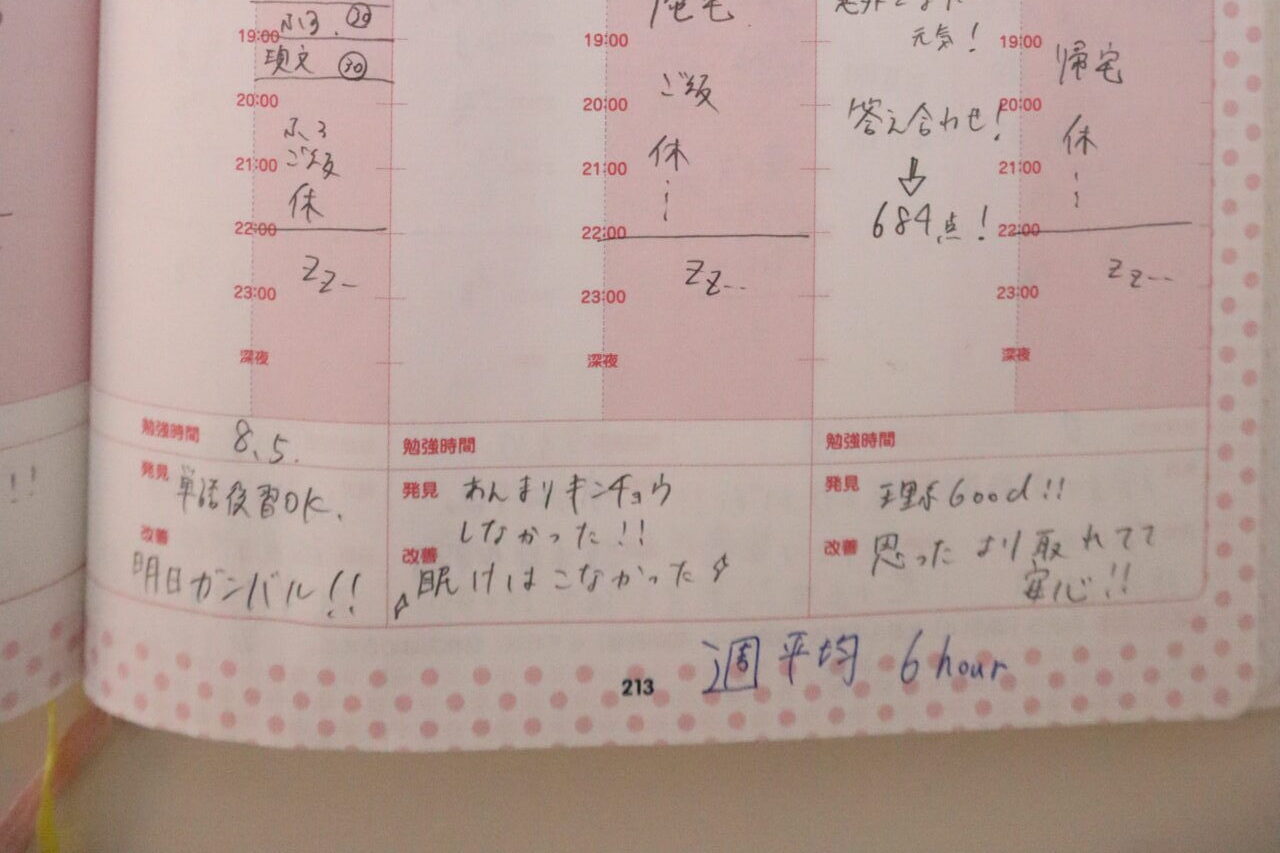 ふろ. ㉙
19:00
現文 ㉚
20:00
ふろ
ご飯
21:00
休
22:00
ZZ--
23:00
深夜
勉強時間 8.5.
発見 単語復習OK.
改善
明日ガンバル!!
帰宅
19:00
ご飯
20:00
休
21:00
22:00
ZZ--
23:00
深夜
勉強時間
発見 あんまりキンチョウ
しなかった!!
改善
眠けはこなかった
元気!
19:00
帰宅
20:00
答え合わせ!
休
21:00
↓
684点!
22:00
ZZ---
23:00
深夜
勉強時間
発見 理系Good!!
改善 思ったより取れてて
安心!!
!!
213
週平均 6hour